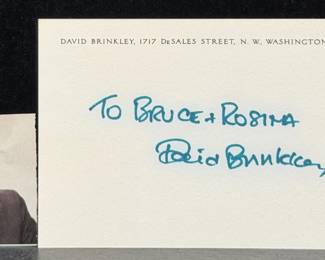 DAVID BRINKLEY, 1717 DeSALES STREET, N. W., WASHINGTON
TO BRUCE + ROSINA
David Brinkley